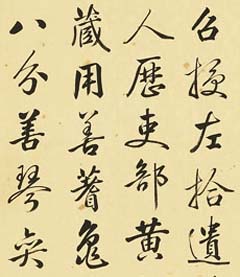 召授左拾遺
人歷吏部黃
藏用善蓍龜
八分善琴奕